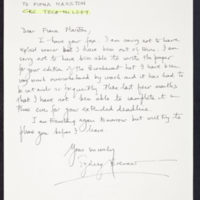 TO FIONA MARSTON
Dear Fiona Marston,
I have your fax. I am sorry not to have
replied sooner but I have been out of town. I am
sorry not to have been able to write the paper
for your edition of the                but I have been
very much                by work and it has had to
be set aside so frequently these last few months
that I have not been able to complete it in
time even for your extended deadline.
I am travelling again tomorrow but will try to
phone you before I leave.
Yours sincerely
Sydney Brenner